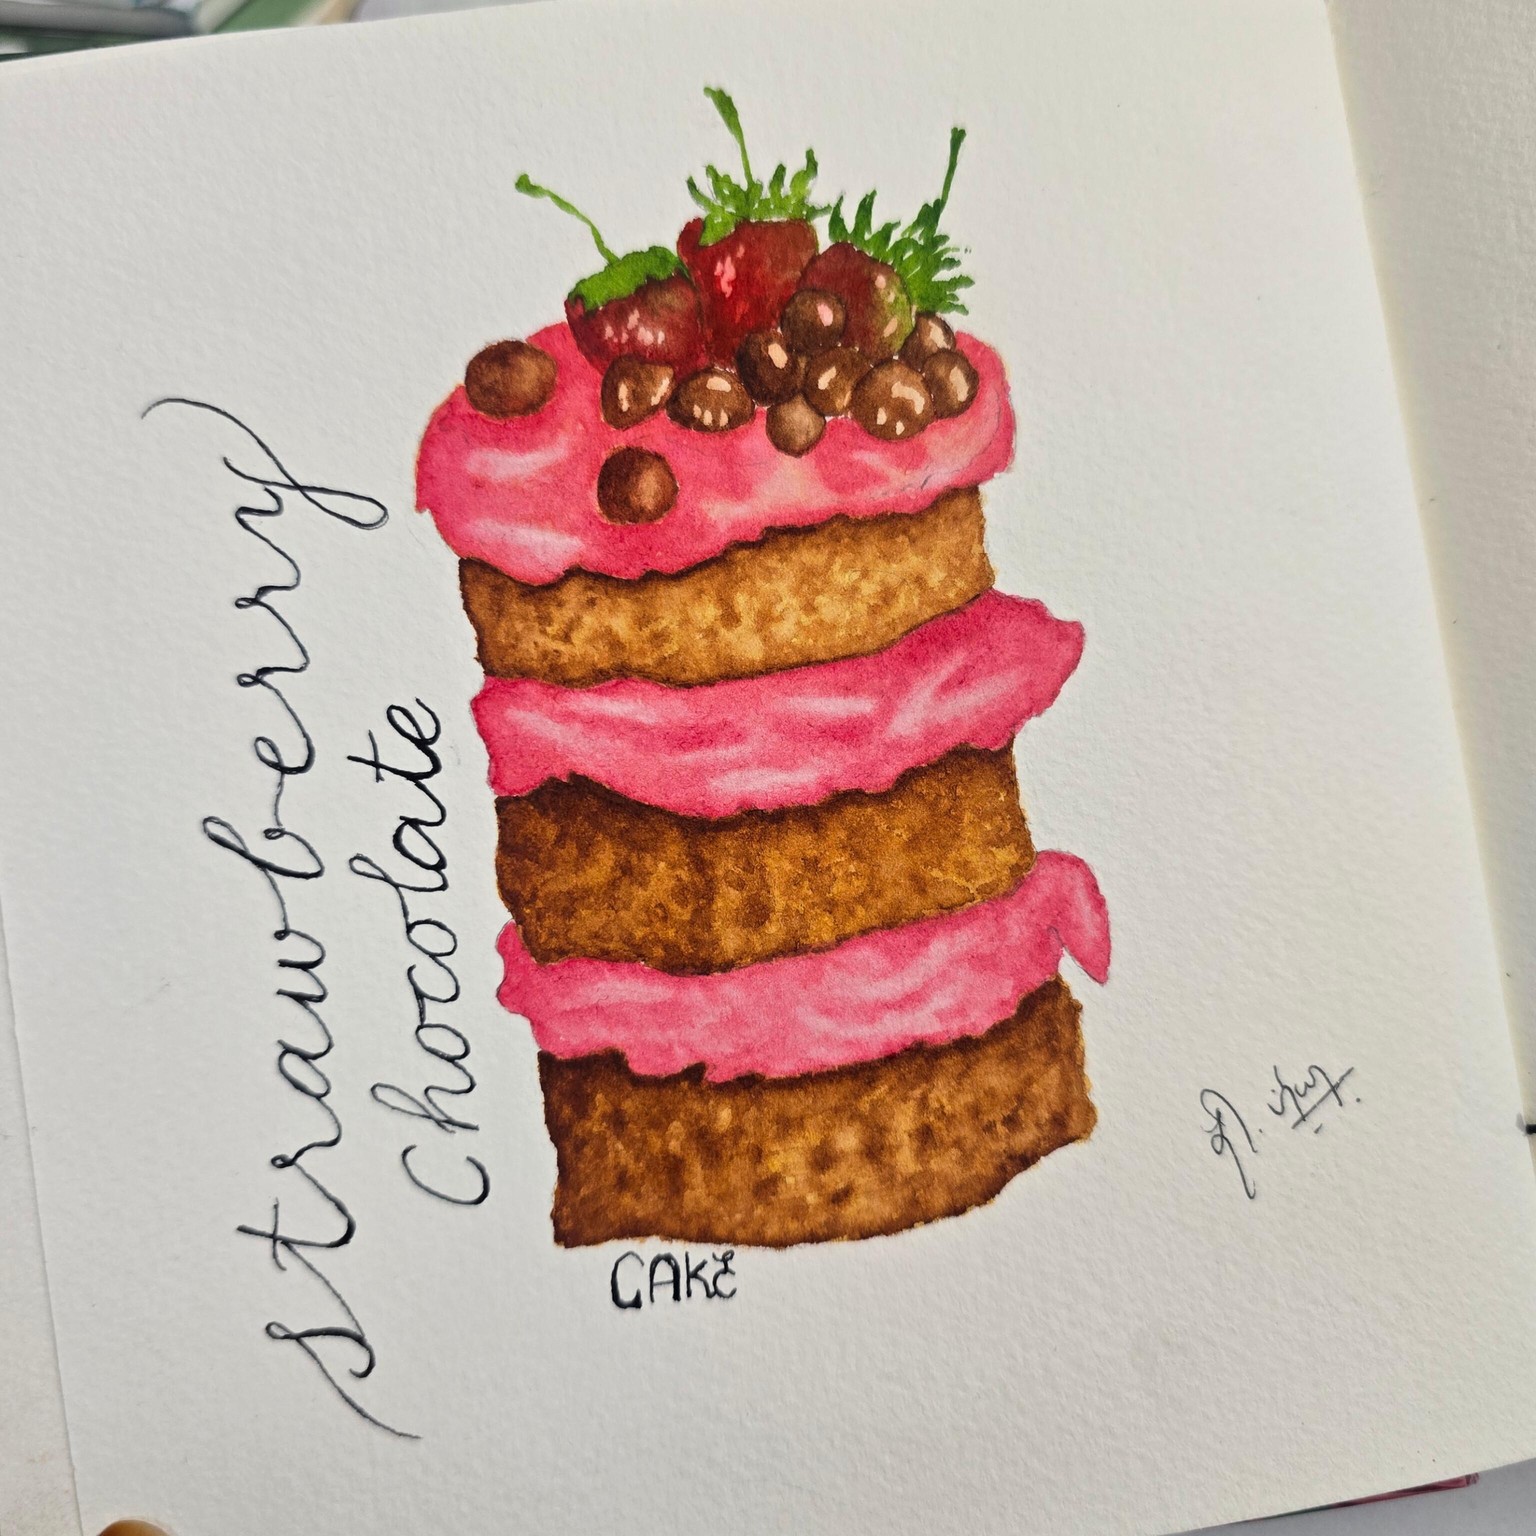 strawberry
Chocolate
CAKE